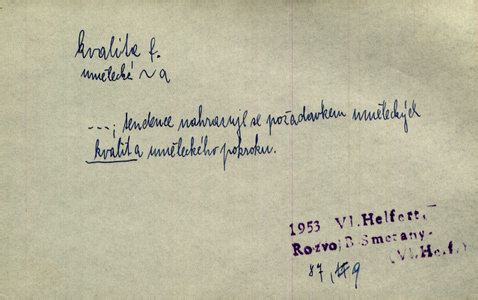 kvalita f.
umělecká ~a
---; tendence nahrazují se požadavkem uměleckých
kvalit a uměleckého pokroku.
1953 Vl. Helfert,
Rozvoj B. Smetany-
(Vl.He.f.)
87,